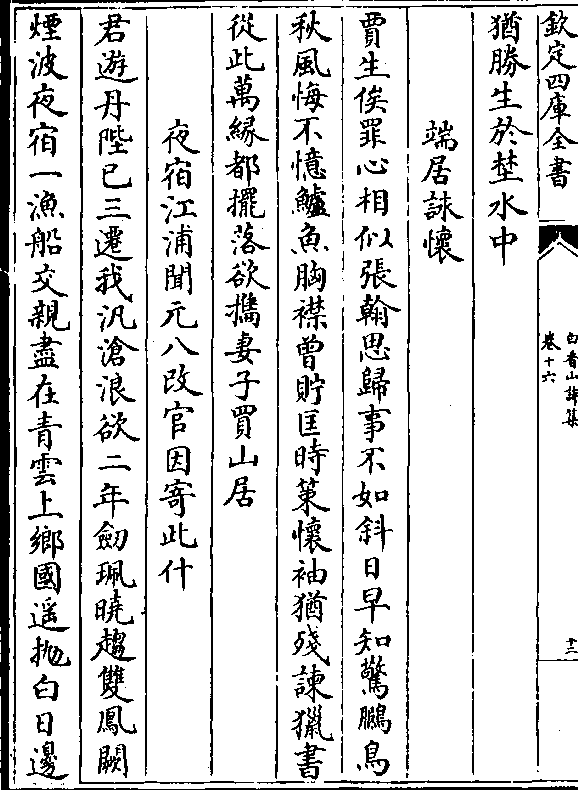 欽定四庫全書
白香山詩集
卷十六
十三
猶勝生於埜水中
端居詠懷
賈生俟罪心相似張翰思歸事不如斜日早知驚鵩鳥
秋風悔不憶鱸魚胸襟曾貯匡時策懷袖猶殘諫獵書
從此萬緣都擺落欲攜妻子買山居
夜宿江浦聞元八改官因寄此什
君遊丹陛已三遷我汎滄浪欲二年劒珮曉趨雙鳳闕
煙波夜宿一漁船交親盡在青雲上鄉國遥抛白日邊